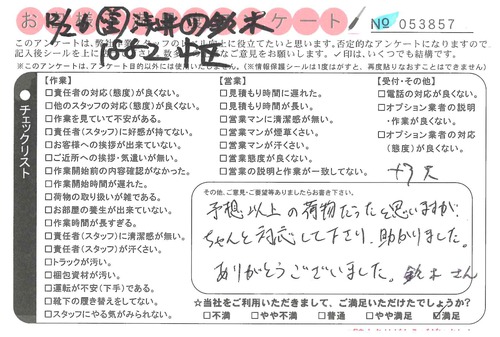 お 様 アンケート № 053857
12/29
1882 北区
鈴木
記入後シールを上にして
※このアンケートは、アンケート目的以外には使用いたしません。(※情報保護シールは1度はがすと、再度貼りなおすことはできません)
チェックリスト
【作業】
□責任者の対応(態度)が良くない。
□他のスタッフの対応(態度)が良くない。
□作業を見ていて不安がある。
□責任者(スタッフ)に好感が持てない。
□お客様への挨拶が出来ていない。
□ご近所への挨拶・気遣いが無い。
□作業開始前の内容確認がなかった。
□作業開始時間が遅れた。
□荷物の取り扱いが雑である。
□お部屋の養生が出来ていない。
□作業時間が長すぎる。
□責任者(スタッフ)に清潔感が無い。
□責任者(スタッフ)が汗くさい。
□トラックが汚い。
□梱包資材が汚い。
□運転が不安(下手)である。
□靴下の履き替えをしてない。
□スタッフにやる気がみられない。
【営業】
□見積もり時間に遅れた。
□見積もり時間が長い。
□営業マンに清潔感が無い。
□営業マンが煙草くさい。
□営業マンが汗くさい。
□営業態度が良くない。
□営業の説明と作業が一致してない。
【受付・その他】
□電話の対応が良くない。
□オプション業者の説明
・作業が良くない。
□オプション業者の対応
(態度)が良くない。
その他、ご意見・ご要望等ありましたらお書き下さい。
予想以上の荷物だったと思いますが、
ちゃんと対応して下さり、助かりました。
ありがとうございました。 鈴木さん
☆当社をご利用いただきまして、ご満足いただけたでしょうか?
□不満 □やや不満 □普通 □やや満足 ☑満足